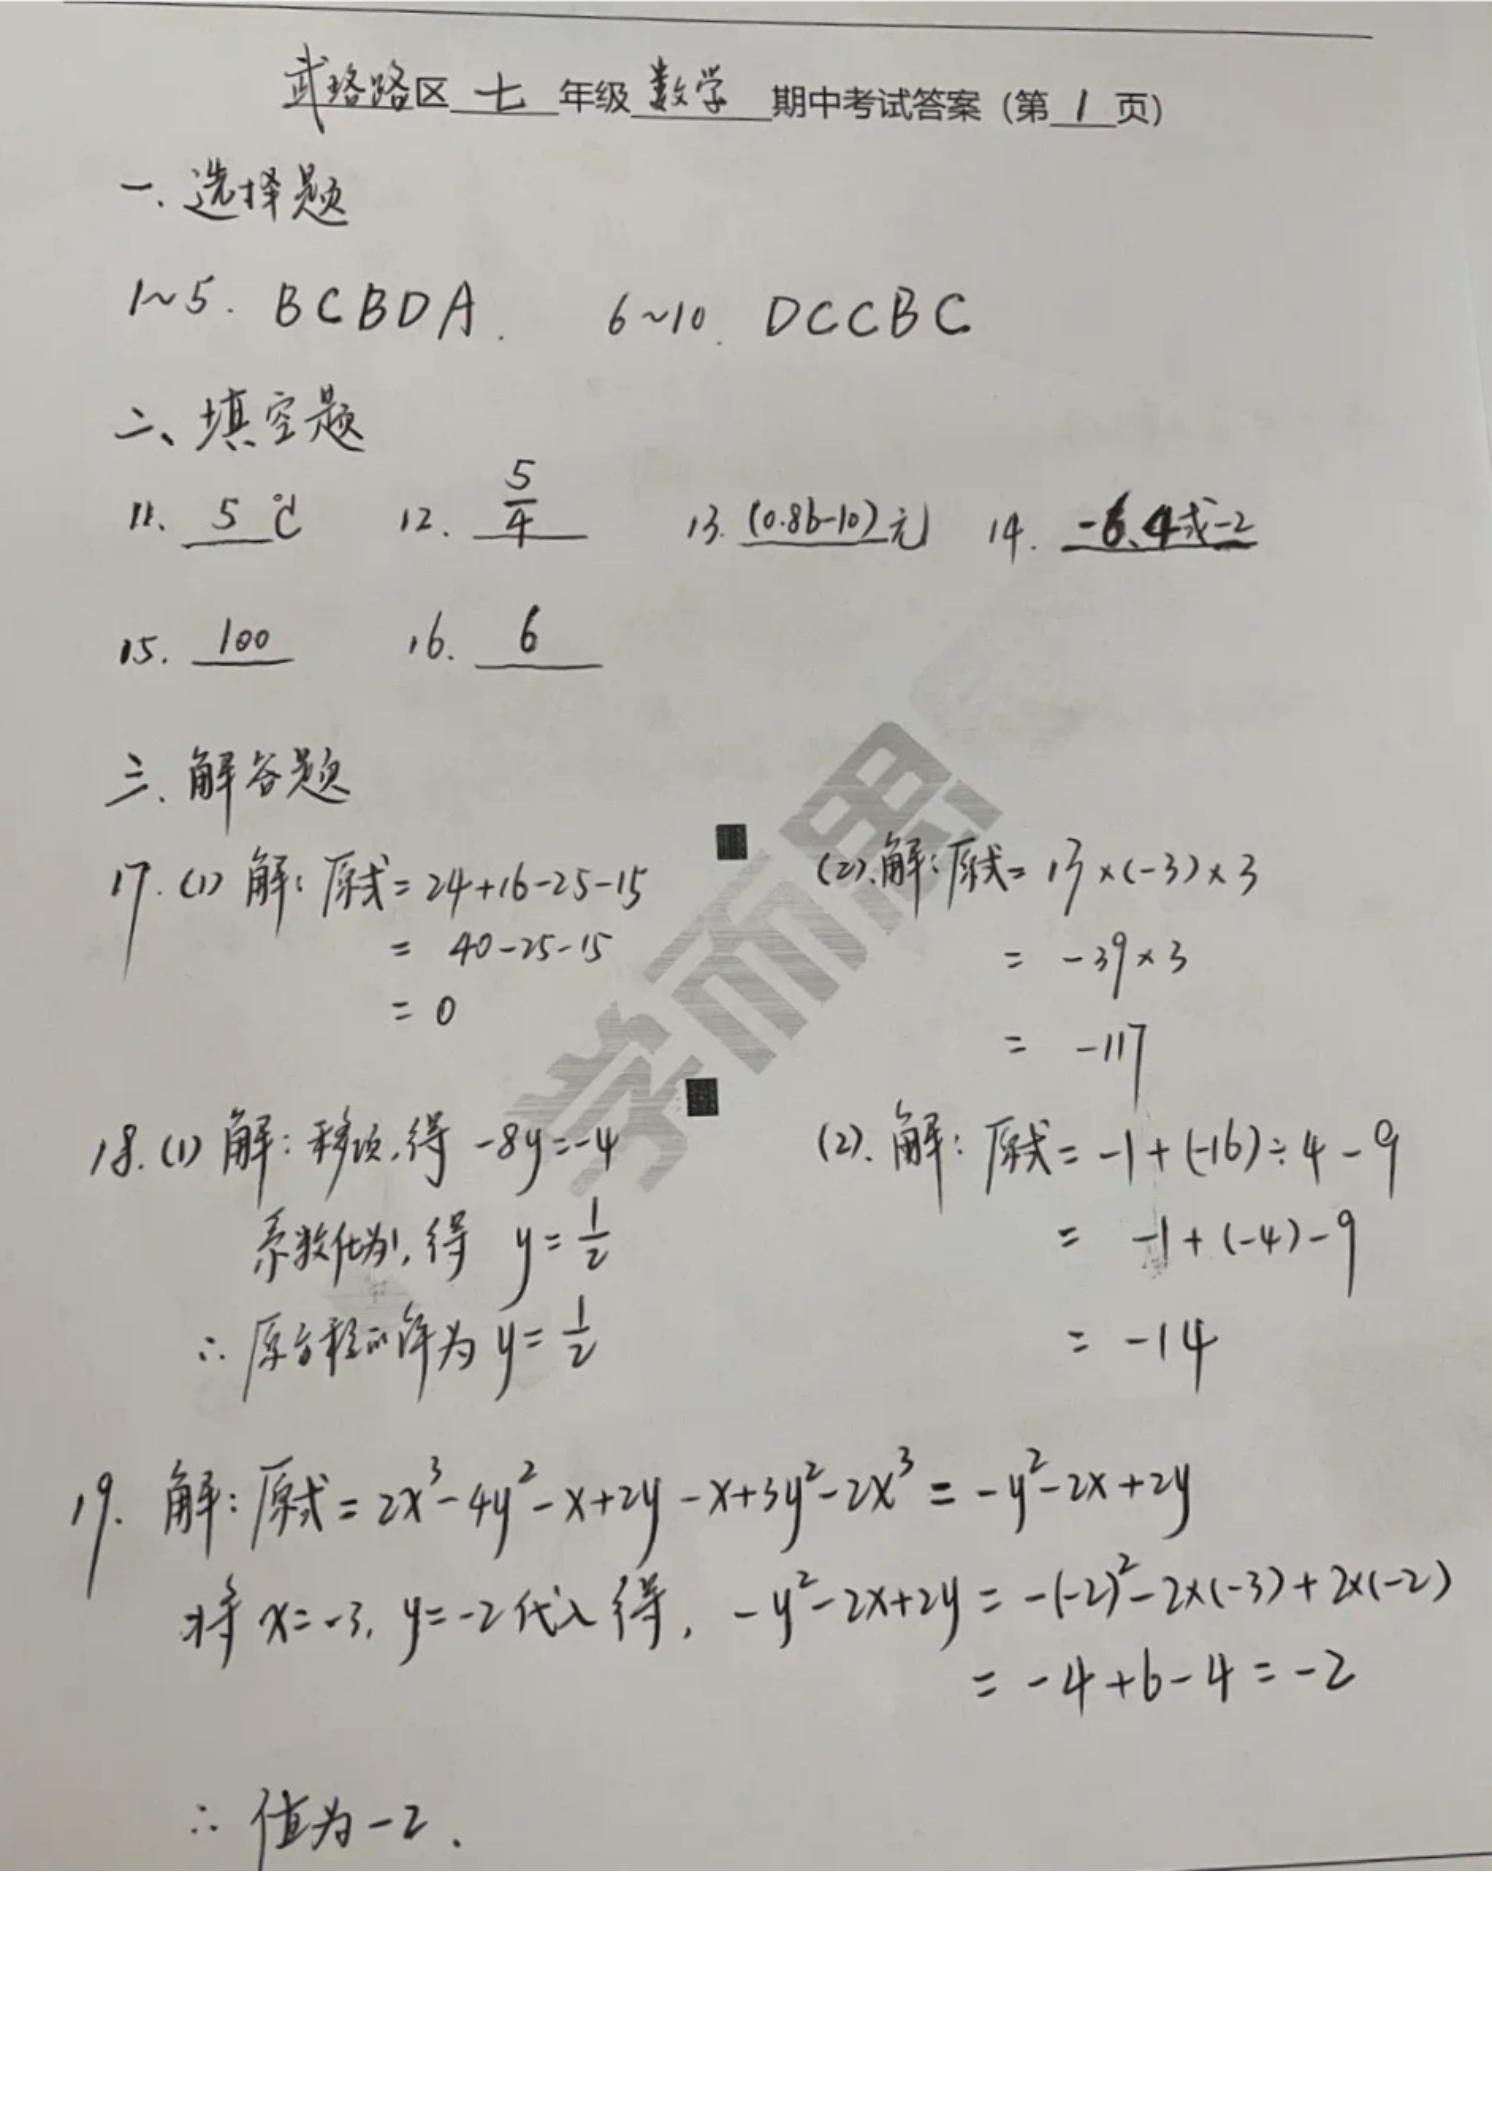 武珞路区七年级数学期中考试答案（第1页）
一.选择题
1~5. BCBDA. 6~10. DCCBC
二、填空题
11. 5℃ 12. 5/4 13. (0.8b-10)元 14. -6、4或-2
15. 100 16. 6
三.解答题
17.(1) 解：原式=24+16-25-15 (2).解：原式=13×(-3)×3
= 40-25-15 = -39×3
= 0 = -117
18.(1) 解：移项,得 -8y=-4 (2). 解：原式=-1+(-16)÷4-9
系数化为1,得 y=1/2 = -1+(-4)-9
∴原方程的解为 y=1/2 = -14
19. 解：原式=2x³-4y²-x+2y-x+3y²-2x³=-y²-2x+2y
将 x=-3, y=-2代入得, -y²-2x+2y=-(-2)²-2×(-3)+2×(-2)
=-4+6-4=-2
∴值为-2.
学而思